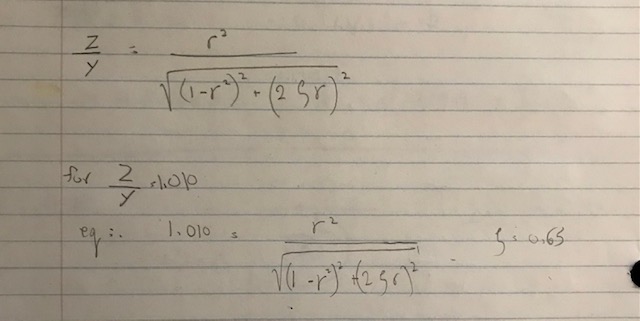 Z/Y = r²/√((1-r²)² + (2ζr)²)
for Z/Y = 1.010
eq ∴ 1.010 = r²/√((1-r²)² + (2ζr)²) ζ = 0.65